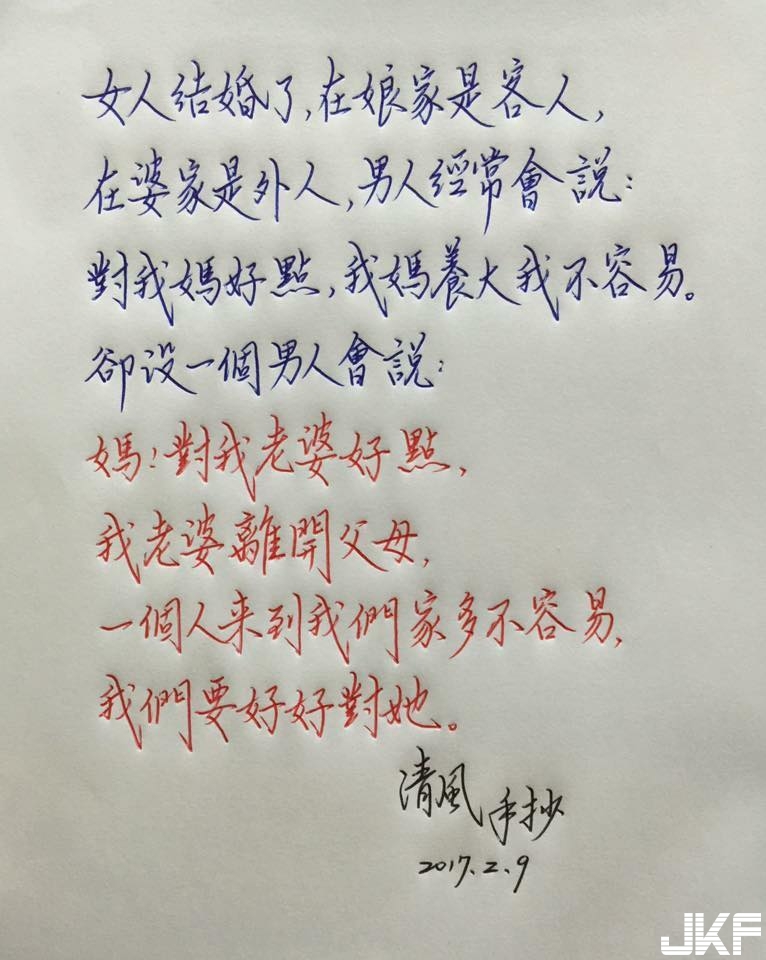 女人結婚了,在娘家是客人,
在婆家是外人,男人經常會說:
對我媽好點,我媽養大我不容易。
卻没一個男人會說:
媽!對我老婆好點,
我老婆離開父母,
一個人来到我們家多不容易,
我們要好好對她。
清風手抄
2017.2.9
JKF